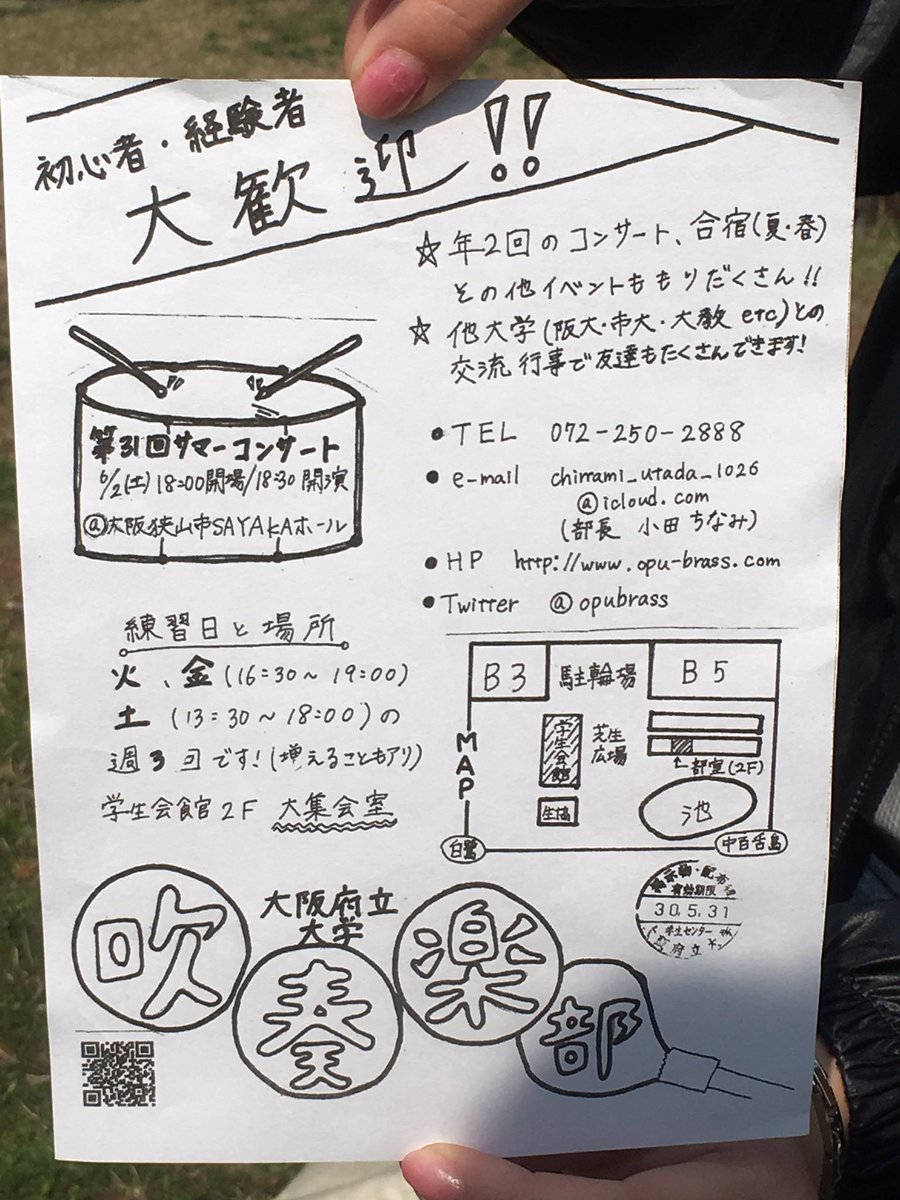 初心者・経験者
大歓迎!!
☆年2回のコンサート、合宿(夏・春)
その他イベントももりだくさん!!
☆他大学(阪大・市大・大教 etc)との
交流行事で友達もたくさんできます!
第31回サマーコンサート
6/2(土)18:00開場/18:30開演
@大阪狭山市SAYAKAホール
●TEL 072-250-2888
●e-mail chinami_utada_1026
@icloud.com
(部長 小田 ちなみ)
●HP http://www.opu-brass.com
●Twitter @opubrass
練習日と場所
火、金(16:30～19:00)
土(13:30～18:00)の
週3回です!(増えることもアリ)
学生会館2F 大集会室
B3 駐輪場 B5
MAP
学生会館
芝生
広場
部室(2F)
生協
池
白鷺
中百舌鳥
大阪府立
大学
吹奏楽部
掲示物・配布
有効期限
30.5.31
学生センター
府立